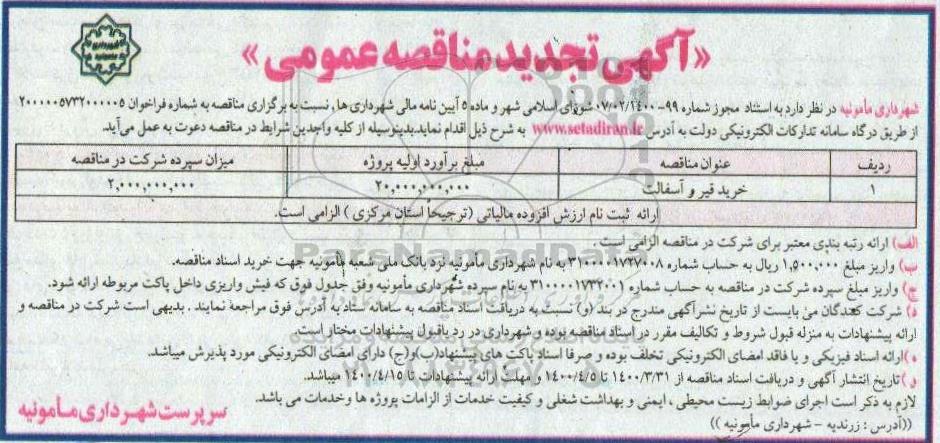 «آگهی تجدید مناقصه عمومی»
شهرداری مأمونیه در نظر دارد به استناد مجوز شماره ۹۹-۰۷/۰۲/۱۴۰۰ شورای اسلامی شهر و ماده ۵ آیین نامه مالی شهرداری ها، نسبت به برگزاری مناقصه به شماره فراخوان ۲۰۰۰۰۰۵۷۳۲۰۰۰۰۰۵
از طریق درگاه سامانه تدارکات الکترونیکی دولت به آدرس www.setadiran.ir به شرح ذیل اقدام نماید.بدینوسیله از کلیه واجدین شرایط در مناقصه دعوت به عمل می‌آید.
ردیف عنوان مناقصه مبلغ برآورد اولیه پروژه میزان سپرده شرکت در مناقصه
۱ خرید قیر و آسفالت ۲۰,۰۰۰,۰۰۰,۰۰۰ ۲,۰۰۰,۰۰۰,۰۰۰
ارائه ثبت نام ارزش افزوده مالیاتی (ترجیحاً استان مرکزی) الزامی است.
الف) ارائه رتبه بندی معتبر برای شرکت در مناقصه الزامی است.
ب) واریز مبلغ ۱,۵۰۰,۰۰۰ ریال به حساب شماره به نام شهرداری مأمونیه نزد بانک ملی شعبه مأمونیه جهت خرید اسناد مناقصه.
ج) واریز مبلغ سپرده شرکت در مناقصه به حساب شماره ۳۱۰۰۰۰۱۷۳۲۰۰۱ به نام سپرده شهرداری مأمونیه وفق جدول فوق که فیش واریزی داخل پاکت مربوطه ارائه شود.
د) شرکت کنندگان می بایست از تاریخ نشرآگهی مندرج در بند (و) نسبت به دریافت اسناد مناقصه به سامانه ستاد به آدرس فوق مراجعه نمایند. بدیهی است شرکت در مناقصه و
ارائه پیشنهادات به منزله قبول شروط و تکالیف مقرر در اسناد مناقصه بوده و شهرداری در رد یاقبول پیشنهادات مختار است.
ه) ارائه اسناد فیزیکی و یا فاقد امضای الکترونیکی تخلف بوده و صرفا اسناد پاکت های پیشنهاد(ب)و(ج) دارای امضای الکترونیکی مورد پذیرش میباشد.
و) تاریخ انتشار آگهی و دریافت اسناد مناقصه از ۱۴۰۰/۳/۳۱ تا ۱۴۰۰/۴/۵ و مهلت ارائه پیشنهادات تا ۱۴۰۰/۴/۱۵ میباشد.
لازم به ذکر است اجرای ضوابط زیست محیطی ، ایمنی و بهداشت شغلی و کیفیت خدمات از الزامات پروژه ها وخدمات می باشد.
((آدرس : زرندیه - شهرداری مأمونیه ))
سرپرست شهرداری مأمونیه
ParsNamadData